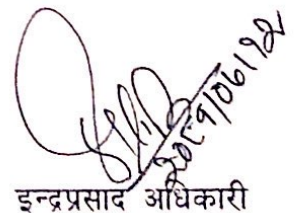 २०८१/०६/१२
इन्द्रप्रसाद अधिकारी